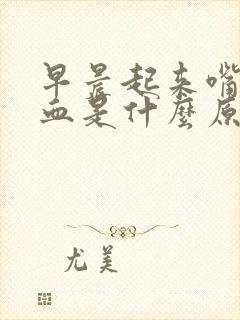 早晨起来嘴
血是什麼原
尤美